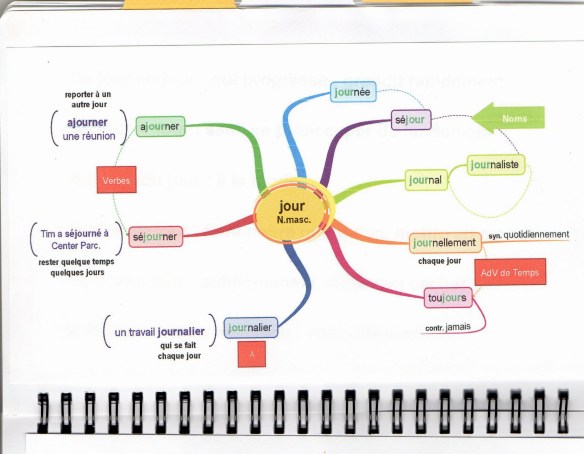 jour
N.masc.
journée
séjour
Noms
journaliste
journal
journellement
syn. quotidiennement
chaque jour
AdV de Temps
toujours
contr. jamais
reporter à un
autre jour
ajourner
une réunion
ajourner
Verbes
Tim a séjourné à
Center Parc.
séjourner
rester quelque temps
quelques jours
un travail journalier
journalier
qui se fait
chaque jour
A